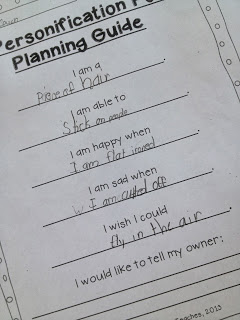 Personification Po
Planning Guide
I am a
Piece of hair.
I am able to
Stick on people.
I am happy when
I am flat irned.
I am sad when
I am cutted off.
I wish I could
fly in the air.
I would like to tell my owner:
Teaches, 2013